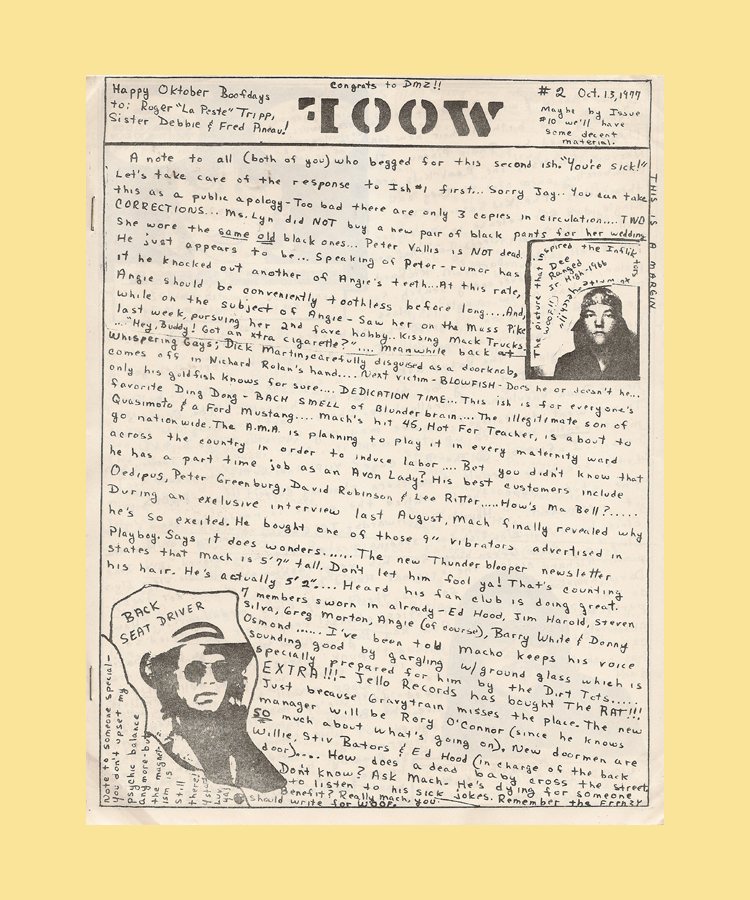 Congrats to Dmz!!
Happy Oktober Boofdays
to: Roger "La Peste" Tripp,
Sister Debbie & Fred Pineau!
WOOF
#2 Oct. 13, 1977
Maybe by Issue
#10 we'll have
some decent
material.
THIS IS A MARGIN
A note to all (both of you) who begged for this second ish. "You're sick!"
Let's take care of the response to Ish #1 first... Sorry Jay.. You can take
this as a public apology - Too bad there are only 3 copies in circulation.... TWO
CORRECTIONS... Ms. Lyn did NOT buy a new pair of black pants for her wedding
She wore the same old black ones... Peter Vallis is NOT dead.
He just appears to be... Speaking of Peter - rumor has
it he knocked out another of Angie's teeth...At this rate,
Angie should be conveniently toothless before long....And,
while on the subject of Angie - Saw her on the Mass Pike
last week, pursuing her 2nd fave hobby.. Kissing Mack Trucks.
..."Hey, Buddy! Got an xtra cigarette?".... Meanwhile back at
Whispering Gays; Dick Martin, carefully disguised as a doorknob,
comes off in Nichard Rolan's hand.... Next victim - BLOWFISH - Does he or doesn't he...
only his goldfish knows for sure.... DEDICATION TIME... This ish is for everyone's
favorite Ding Dong - BACH SMELL of Blunderbrain.... The illegitimate son of
Quasimoto & a Ford Mustang.... Mach's hit 45, Hot For Teacher, is about to
go nationwide. The A.M.A. is planning to play it in every maternity ward
across the country in order to induce labor .... Bet you didn't know that
he has a part time job as an Avon Lady? His best customers include
Oedipus, Peter Greenburg, David Robinson & Lee Ritter.....How's Ma Bell?.....
During an exclusive interview last August, Mach finally revealed why
he's so excited. He bought one of those 9" vibrators advertised in
Playboy. Says it does wonders...... The new Thunderblooper newsletter
states that Mach is 5'7" tall. Don't let him fool ya! That's counting
his hair. He's actually 5'2".... Heard his fan club is doing great.
7 members sworn in already - Ed Hood, Jim Harold, Steven
Silva, Greg Morton, Angie (of course), Barry White & Donny
Osmond ..... I've been told Macho keeps his voice
sounding good by gargling w/ground glass which is
specially prepared for him by the Dirt Tots.....
EXTRA!!! - Jello Records has bought The RAT!!!
Just because Gravytrain misses the place. The new
manager will be Rory O'Connor (since he knows
so much about what's going on), New doormen are
Willie, Stiv Bators & Ed Hood (in charge of the back
door).... How does a dead baby cross the street
Don't know? Ask Mach - He's dying for someone
to listen to his sick jokes. Remember the Frenzy
benefit? Really mach, you
should write for WOOF.
The picture that inspired the Infliktors
Dee
Ranged
Jr High - 1966
WOOF!!
BACK
SEAT DRIVER
Note to someone special -
You don't upset my
psychic balance
anymore - but
the magnet-
ism is
still
there!
Luv,